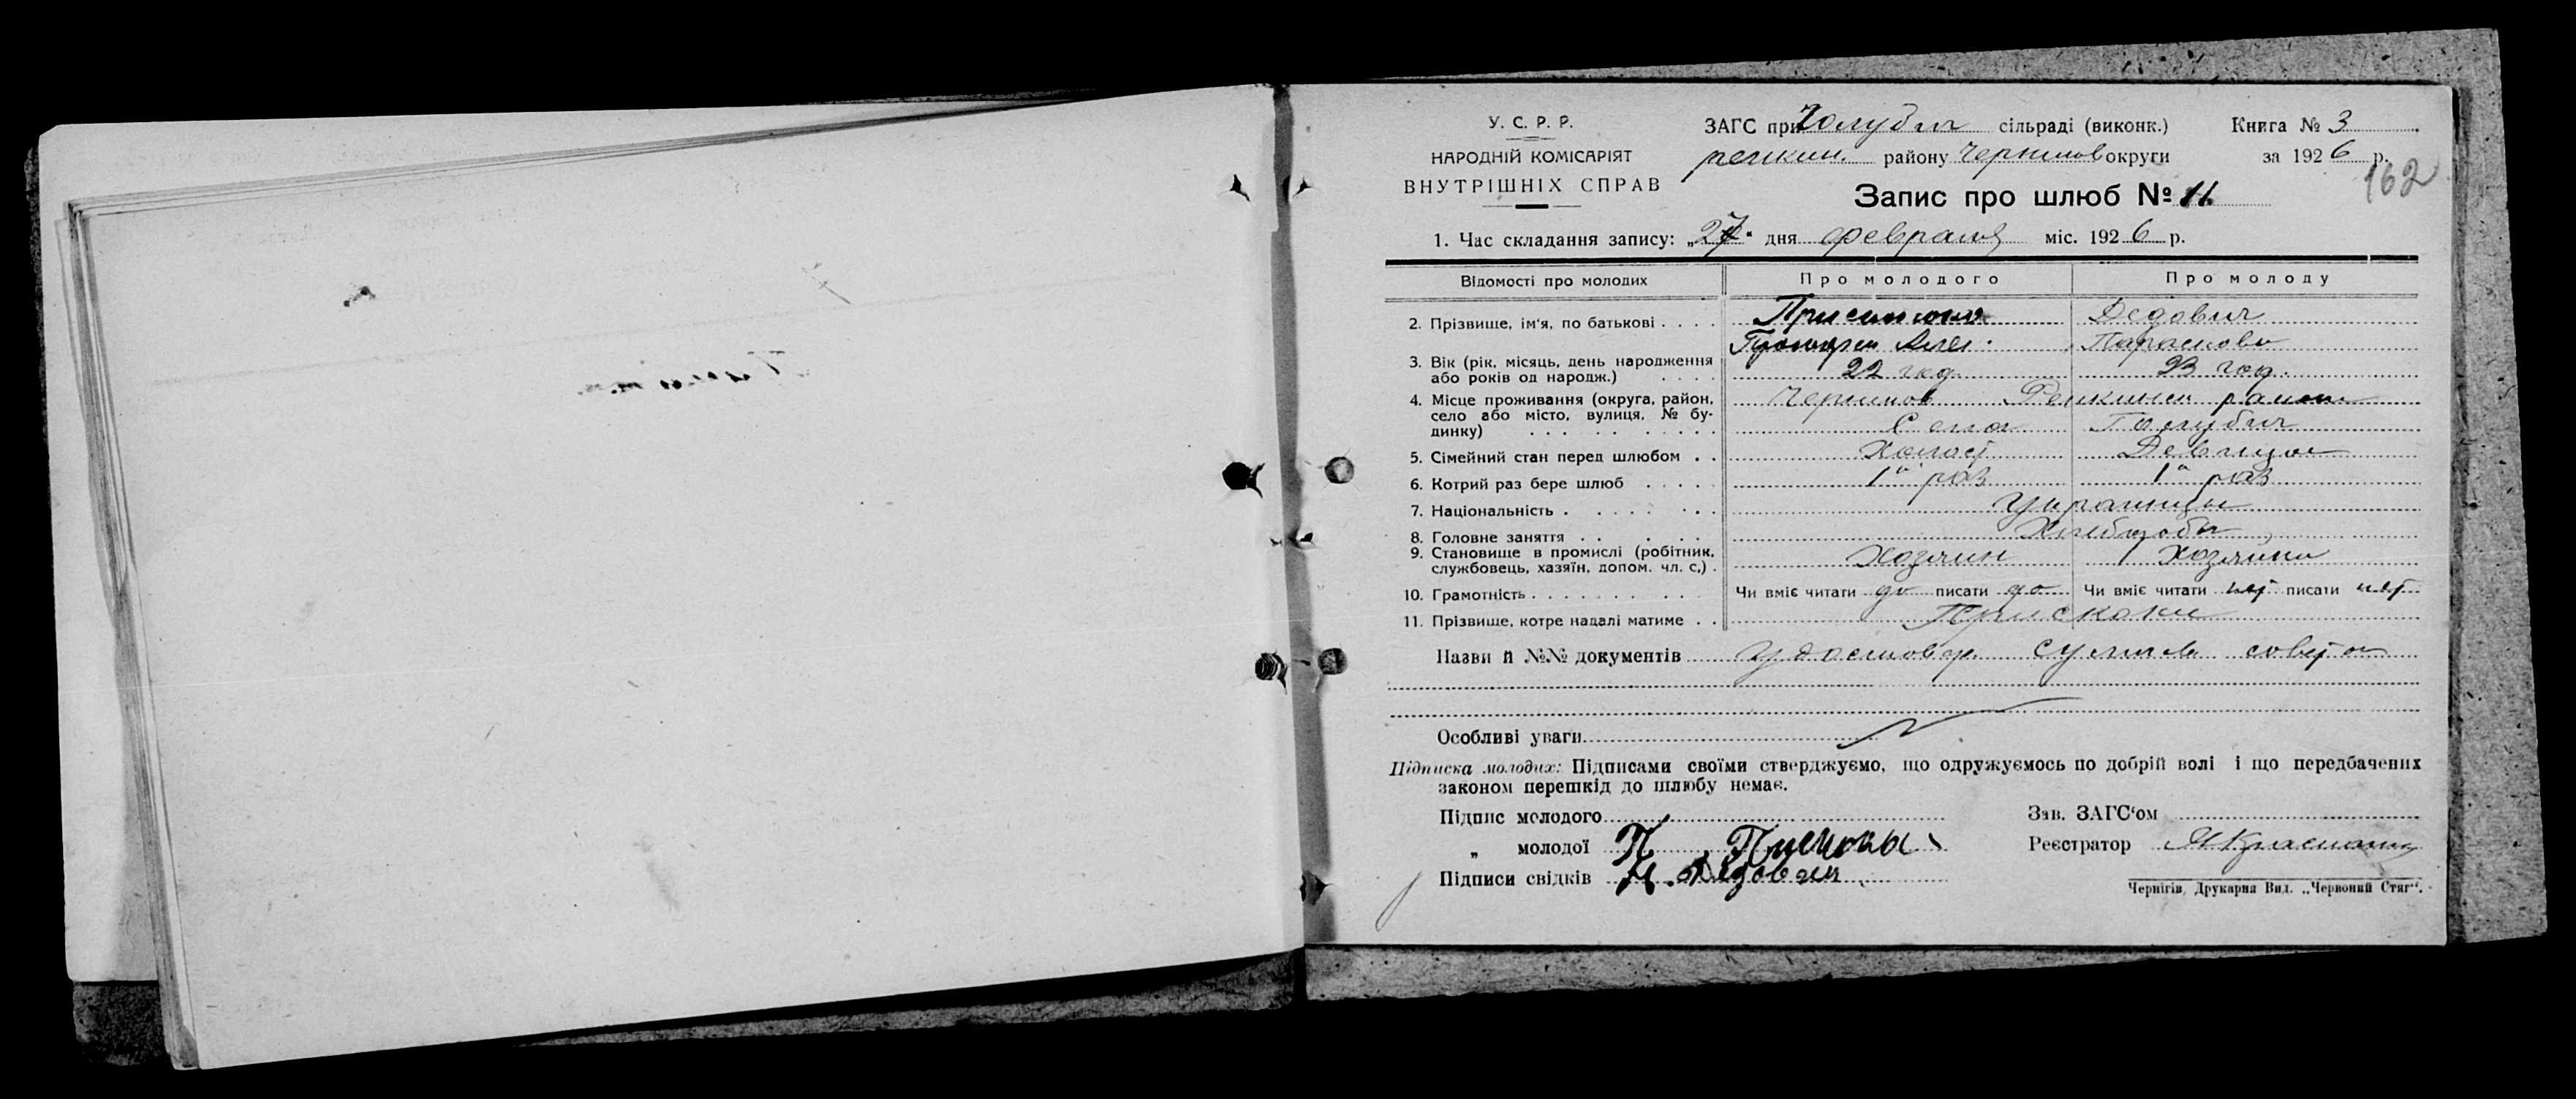 У. С. Р. Р.
НАРОДНІЙ КОМІСАРІЯТ
ВНУТРІШНІХ СПРАВ
ЗАГС при Голубич сільраді (виконк.) Книга № 3
репкин. району Чернигов округи за 1926 р.
162
Запис про шлюб № 11.
1. Час складання запису: „27“ дня февраля міс. 1926 р.
Відомості про молодих Про молодого Про молоду
2. Прізвище, ім'я, по батькові Дедович
Алек. Парасковя
3. Вік (рік, місяць, день народження
або років од народж.) 22 год. 23 год.
4. Місце проживання (округа, район,
село або місто, вулиця, № бу-
динку)
Чернигов Репкинск район
Село Голубич
5. Сімейний стан перед шлюбом Холост Девица
6. Котрий раз бере шлюб 1й раз 1й раз
7. Національність Украинцы
8. Головне заняття Хлебороби
9. Становище в промислі (робітник,
службовець, хазяїн, допом. чл. с.) Хозяин Хозяйка
10. Грамотність Чи вміє читати да писати да Чи вміє читати нет писати нет
11. Прізвище, котре надалі матиме
Назви й №№ документів Удостовер. совета
Особливі уваги
Підписка молодих: Підписами своїми стверджуємо, що одружуємось по добрій волі і що передбачених
законом перешкід до шлюбу немає.
Підпис молодого Зав. ЗАГС'ом
„ молодої П. Реєстратор
Підписи свідків Дедович
Чернігів, Друкарня Вид. „Червоний Стяг“.